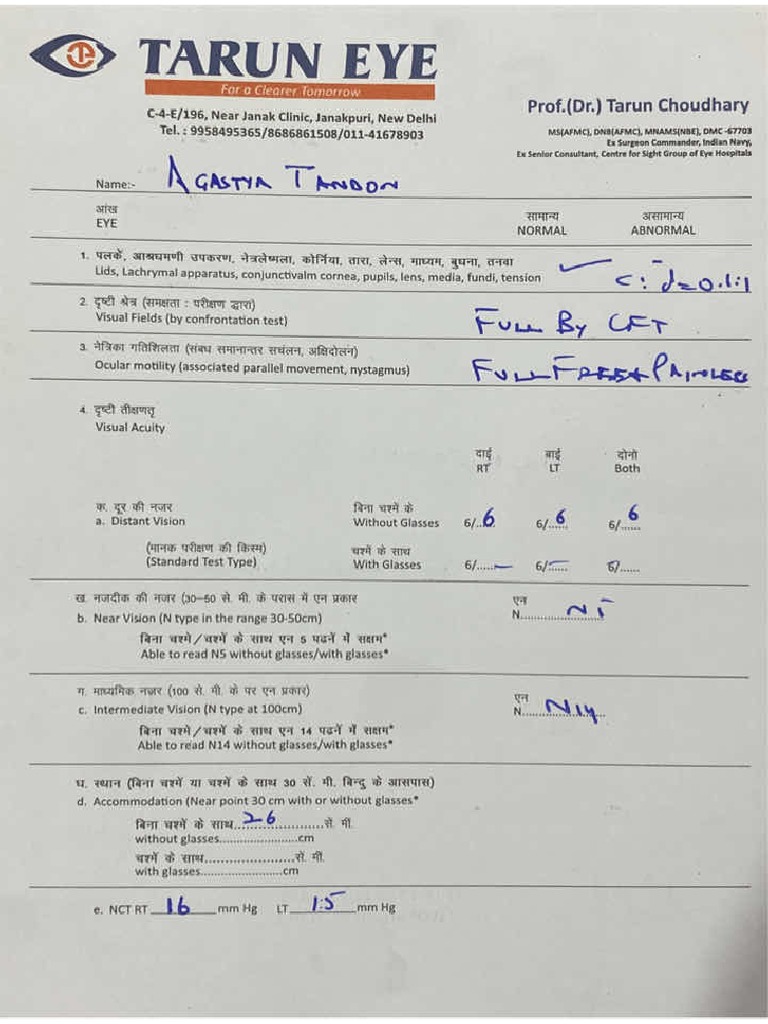 TARUN EYE
For a Clearer Tomorrow
C-4-E/196, Near Janak Clinic, Janakpuri, New Delhi
Tel. : 9958495365/8686861508/011-41678903
Prof.(Dr.) Tarun Choudhary
MS(AFMC), DNB(AFMC), MNAMS(NBE), DMC -67703
Ex Surgeon Commander, Indian Navy,
Ex Senior Consultant, Centre for Sight Group of Eye Hospitals
Name:- AGASTYA TANDON
आंख सामान्य असामान्य
EYE NORMAL ABNORMAL
1. पलकें, आश्रधमणी उपकरण, नेत्रलेष्मला, कोर्निया, तारा, लेन्स, माधयम, बुधना, तनवा
Lids, Lachrymal apparatus, conjunctivalm cornea, pupils, lens, media, fundi, tension ✓ c:d=0.1:1
2. दृष्टी श्रेत्र (समक्षता : परीक्षण द्वारा)
Visual Fields (by confrontation test) FULL BY CFT
3. नेत्रिका गतिशिलता (संबध समानान्तर सचंलन, अक्षिदोलन)
Ocular motility (associated parallel movement, nystagmus) FULL FREE & PAINLESS
4. दृष्टी तीक्षणतृ
Visual Acuity
दाई बाई दोनो
RT LT Both
क. दूर की नजर बिना चश्में के
a. Distant Vision Without Glasses 6/..6. 6/..6.... 6/..6....
(मानक परीक्षण की किस्म) चश्में के साथ
(Standard Test Type) With Glasses 6/.....– 6/..–.... 6/......
ख. नजदीक की नजर (30–50 से. मी. के परास में एन प्रकार एन
b. Near Vision (N type in the range 30-50cm) N..........N5
बिना चश्मे/चश्में के साथ एन 5 पढनें में सक्षम*
Able to read N5 without glasses/with glasses*
ग. माध्यमिक नज़र (100 से. मी. के पर एन प्रकार) एन
c. Intermediate Vision (N type at 100cm) N......N14..
बिना चश्में/चश्में के साथ एन 14 पढनें में सक्षम*
Able to read N14 without glasses/with glasses*
घ. स्थान (बिना चश्में या चश्में के साथ 30 सें. मी. बिन्दु के आसपास)
d. Accommodation (Near point 30 cm with or without glasses*
बिना चश्में के साथ..26......................से. मी.
without glasses........................cm
चश्में के साथ.......................सें. मी.
with glasses.........................cm
e. NCT RT 16 mm Hg LT 15 mm Hg